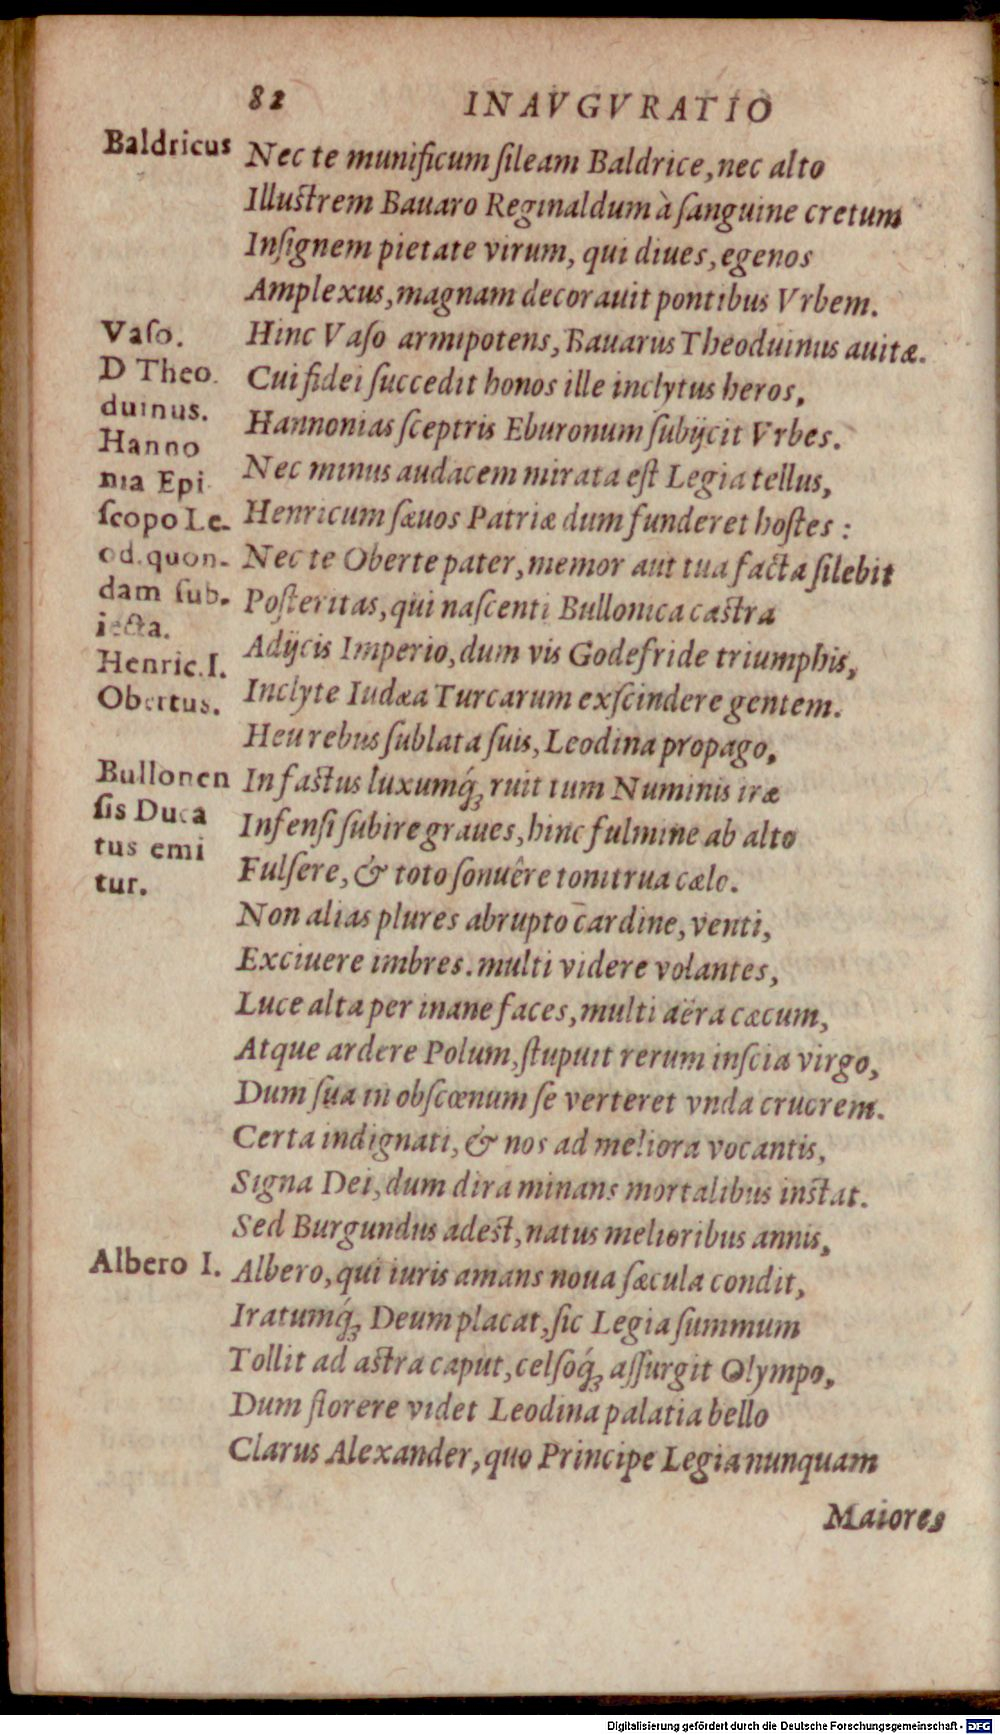 82 INAVGVRATIO
Baldricus
Nec te munificum ſileam Baldrice, nec alto
Illuſtrem Bauaro Reginaldum à ſanguine cretum
Inſignem pietate virum, qui diues, egenos
Amplexus, magnam decorauit pontibus Vrbem.
Vaſo.
Hinc Vaſo armipotens, Bauarus Theoduinus auitæ.
D Theo
duinus.
Cui fidei ſuccedit honos ille inclytus heros,
Hanno
Hannonias ſceptris Eburonum ſubijcit Vrbes.
nia Epi
Nec minus audacem mirata eſt Legia tellus,
ſcopo Le-
Henricum ſæuos Patriæ dum funderet hoſtes :
od. quon-
Nec te Oberte pater, memor aut tua facta ſilebit
dam ſub-
Poſteritas, qui naſcenti Bullonica caſtra
iecta.
Henric. I.
Adijcis Imperio, dum vis Godefride triumphis,
Obertus.
Inclyte Iudæa Turcarum exſcindere gentem.
Heu rebus ſublata ſuis, Leodina propago,
Bullonen
In faſtus luxumq́ꝫ ruit tum Numinis iræ
ſis Duca
Infenſi ſubire graues, hinc fulmine ab alto
tus emi
tur.
Fulſere, & toto ſonuêre tonitrua cælo.
Non alias plures abrupto cardine, venti,
Exciuere imbres. multi videre volantes,
Luce alta per inane faces, multi aëra cæcum,
Atque ardere Polum, ſtupuit rerum inſcia virgo,
Dum ſua in obſcœnum ſe verteret vnda cruorem.
Certa indignati, & nos ad meliora vocantis,
Signa Dei, dum dira minans mortalibus inſtat.
Sed Burgundus adeſt, natus melioribus annis,
Albero I.
Albero, qui iuris amans noua ſæcula condit,
Iratumq́ꝫ Deum placat, ſic Legia ſummum
Tollit ad aſtra caput, celſoq́ꝫ aſſurgit Olympo,
Dum florere videt Leodina palatia bello
Clarus Alexander, quo Principe Legia nunquam
Maiores
Digitalisierung gefördert durch die Deutsche Forschungsgemeinschaft - DFG